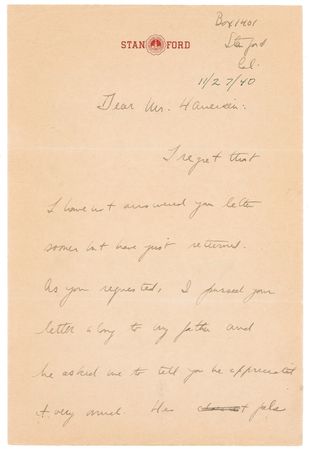 STANFORD
Box 1401
Stanford
Cal.
11/27/40
Dear Mr.
I regret that
I have not answered your letter
sooner but have just returned.
As you requested, I passed your
letter along to my father and
he asked me to tell you he appreciated
it very much. His pals